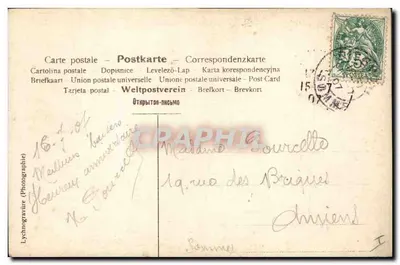 Carte postale - Postkarte - Correspondenzkarte
Cartolina postale - Dopisnice - Levelező-Lap - Karta korespondencyjna
Briefkaart - Union postale universelle - Unione postale universale - Post Card
Tarjeta postal - Weltpostverein - Brefkort - Brevkort
Открытое-письмо
Meilleurs
Heureux anniversaire
Madame Gourcelle
19 rue des Brigues
Amiens
Somme
Lychnogravüre (Photographie)
CPARAMA.com